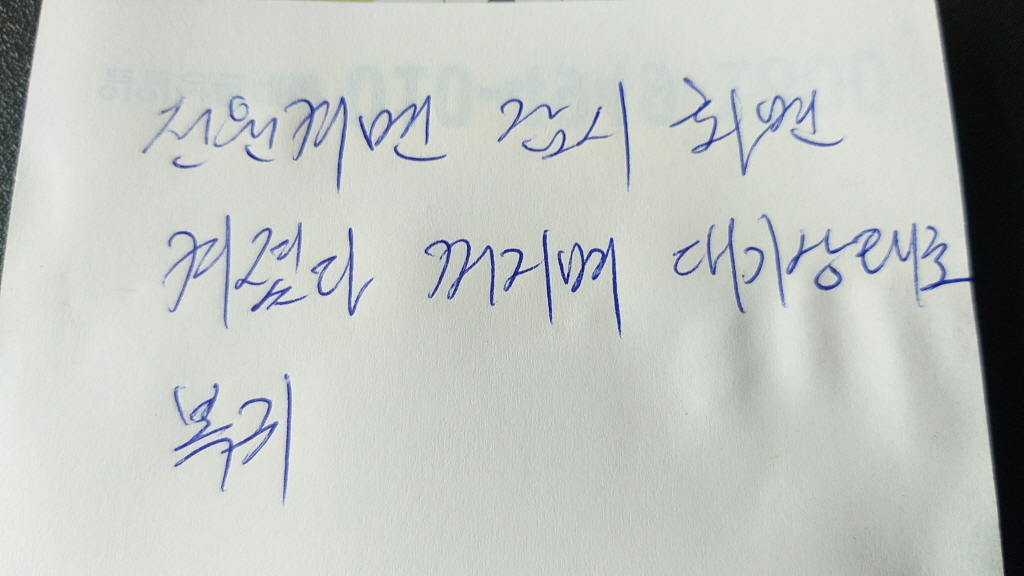 전원켜면 잠시 화면
켜졌다 꺼지며 대기상태로
복귀